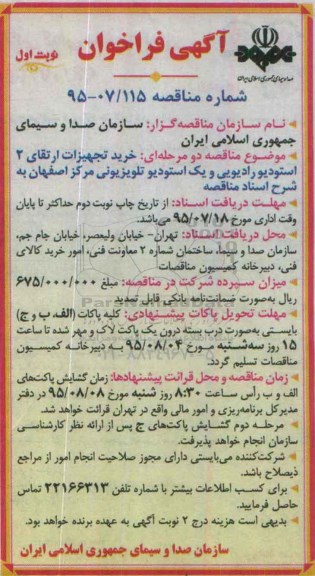 صدا و سیمای جمهوری اسلامی ایران
آگهی فراخوان
نوبت اول
شماره مناقصه ۹۵-۰۷/۱۱۵
نـام سـازمان مناقصه‌گـزار: سـازمان صـدا و سـیمای
جمهوری اسلامی ایران
موضـوع مناقصه دو مرحله‌ای: خرید تجهیزات ارتقای ۲
استودیو رادیویی و یک استودیو تلویزیونی مرکز اصفهان به
شرح اسناد مناقصه
مهلـت دریافت اسـناد: از تاریخ چاپ نوبت دوم حداکثر تا پایان
وقت اداری مورخ ۹۵/۰۷/۱۸ می‌باشد.
محل دریافت اسـناد: تهران- خیابان ولیعصر، خیابان جام جم،
سازمان صدا و سیما، ساختمان شماره ۲ معاونت فنی، امور خرید کالای
فنی، دبیرخانه کمیسیون مناقصات
میزان سـپرده شرکت در مناقصه: مبلغ ۶۷۵/۰۰۰/۰۰۰
ریال به‌صورت ضمانت‌نامه بانکی قابل تمدید
مهلت تحویل پاکات پیشـنهادی: کلیه پاکات (الف، ب و ج)
بایسـتی به‌صورت درب بسته درون یک پاکت لاک و مهر شده تا ساعت
۱۵ روز سه‌شنبه مـورخ ۹۵/۰۸/۰۴ بـه دبیرخانـه کمیسـیون
مناقصات تسلیم گردد.
زمان مناقصه و محل قرائت پیشنهادها: زمان گشایش پاکت‌های
الف و ب رأس ساعت ۸:۳۰ روز شنبه مورخ ۹۵/۰۸/۰۸ در دفتر
مدیرکل برنامه‌ریزی و امور مالی واقع در تهران قرائت خواهد شد.
مرحلـه دوم گشـایش پاکت‌های ج پس از ارائه نظر کارشناسـی
سازمان انجام خواهد پذیرفت.
شرکت‌کننده می‌بایستی دارای مجوز صلاحیت انجام امور از مراجع
ذیصلاح باشد.
برای کسـب اطلاعات بیشتر با شماره تلفن ۲۲۱۶۶۳۱۳ تماس
حاصل فرمایید.
بدیهی است هزینه درج ۲ نوبت آگهی به عهده برنده خواهد بود.
سازمان صدا و سیمای جمهوری اسلامی ایران